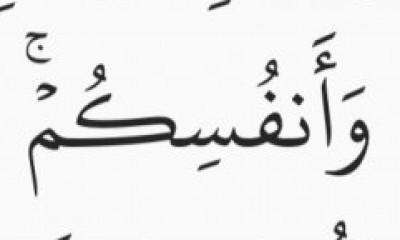 وَأَنفُسِكُمْۚ